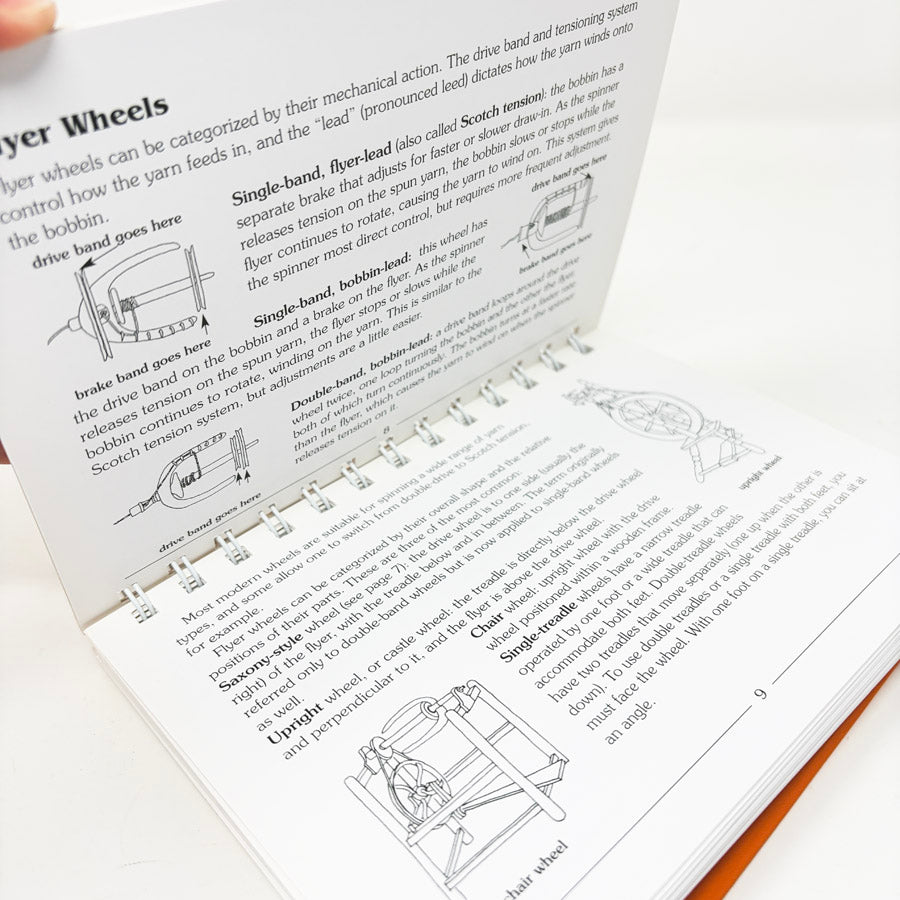 yer Wheels
lyer wheels can be categorized by their mechanical action. The drive band and tensioning system
control how the yarn feeds in, and the “lead” (pronounced leed) dictates how the yarn winds onto
the bobbin.
drive band goes here
brake band goes here
Single-band, flyer-lead (also called Scotch tension): the bobbin has a
separate brake that adjusts for faster or slower draw-in. As the spinner
releases tension on the spun yarn, the bobbin slows or stops while the
flyer continues to rotate, causing the yarn to wind on. This system gives
the spinner most direct control, but requires more frequent adjustment.
drive band goes here
brake band goes here
Single-band, bobbin-lead: this wheel has
the drive band on the bobbin and a brake on the flyer. As the spinner
releases tension on the spun yarn, the flyer stops or slows while the
bobbin continues to rotate, winding on the yarn. This is similar to the
Scotch tension system, but adjustments are a little easier.
drive band goes here
Double-band, bobbin-lead: a drive band loops around the drive
wheel twice, one loop turning the bobbin and the other the flyer,
both of which turn continuously. The bobbin turns at a faster rate
than the flyer, which causes the yarn to wind on when the spinner
releases tension on it.
8
Most modern wheels are suitable for spinning a wide range of yarn
types, and some allow one to switch from double drive to Scotch tension,
for example.
Flyer wheels can be categorized by their overall shape and the relative
positions of their parts. These are three of the most common:
Saxony-style wheel (see page 7): the drive wheel is to one side (usually the
right) of the flyer, with the treadle below and in between. The term originally
referred only to double-band wheels but is now applied to single-band wheels
as well.
Upright wheel, or castle wheel: the treadle is directly below the drive wheel
and perpendicular to it, and the flyer is above the drive wheel.
upright wheel
Chair wheel: upright wheel with the drive
wheel positioned within a wooden frame.
Single-treadle wheels have a narrow treadle
operated by one foot or a wide treadle that can
accommodate both feet. Double-treadle wheels
have two treadles that move separately (one up when the other is
down). To use double treadles or a single treadle with both feet, you
must face the wheel. With one foot on a single treadle, you can sit at
an angle.
chair wheel
9